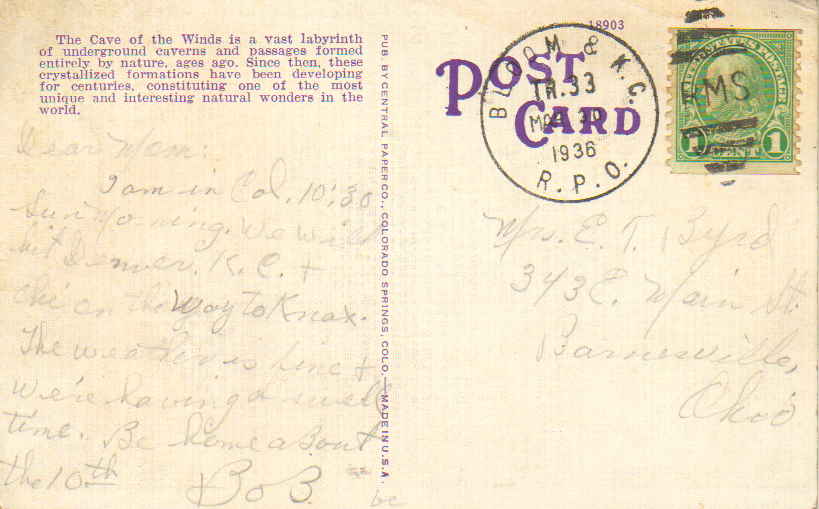 The Cave of the Winds is a vast labyrinth
of underground caverns and passages formed
entirely by nature, ages ago. Since then, these
crystallized formations have been developing
for centuries, constituting one of the most
unique and interesting natural wonders in the
world.
Dear Mom:
I am in Col. 10:30
Sun Morning. We will
hit Denver, K. C. +
Chi on the way to Knox.
The weather is fine +
we're having a swell
time. Be home about
the 10th
BoB
PUB. BY CENTRAL PAPER CO., COLORADO SPRINGS, COLO.—MADE IN U.S.A.
18903
POST
CARD
BLOOM & K.C.
TR.33
30
1936
R.P.O.
RMS
UNITED STATES POSTAGE
1 CENT 1
Mrs. E. T. Byrd
343 E. Main St.
Barnesville,
Ohio